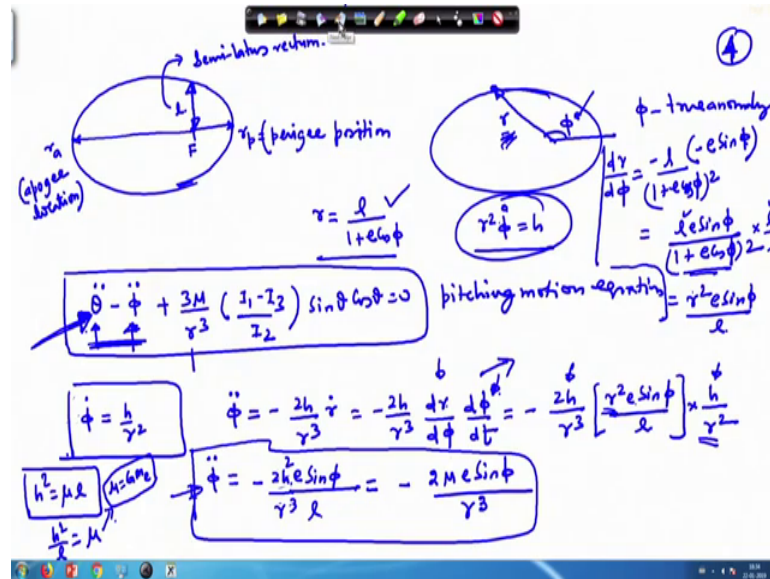 ④
→ Semi-latus rectum.
l
F
r_a
(apogee location)
r_p = (perigee position
r
φ
φ - true anomaly
r = l / (1+e cos φ) ✓
r² φ̇ = h
dr/dφ = -l (-e sin φ) / (1+e cos φ)²
= l e sin φ / (1+e cos φ)² ×
= r² e sin φ / l
θ̈ - φ̈ + 3μ/r³ ( (I₁-I₃)/I₂ ) sin θ cos θ = 0
pitching motion equation
φ̇ = h/r²
φ̈ = - 2h/r³ ṙ = - 2h/r³ dr/dφ dφ/dt = - 2h/r³ [ r² e sin φ / l ] × h/r²
h² = μl
μ = GMe
h²/l = μ
→ φ̈ = - 2h² e sin φ / (r³ l) = - 2μ e sin φ / r³